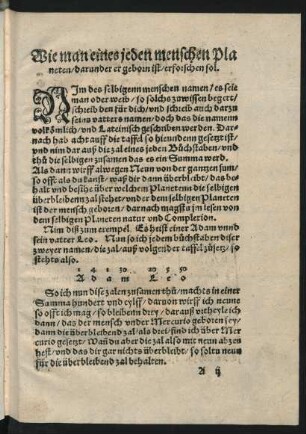 Wie man eines jeden menschen Pla
neten/darunder er geborn ist/erforschen sol.
NIm des selbigenn menschen namen/es seie
man oder weib/so solchs zuwissen begert/
schreib den für dich/und schreib auch darzu
seins vatters namen/doch das die namenn
volkömlich/und Lateinisch geschriben werden. Dar
nach hab acht auff die taffel so hieunden gesetzt ist/
und nim dar auß die zal eines jeden Büchstaben/und
thů die selbigen zusamen das es ein Summa werd.
Als dann wirff alwegen Neun von der gantzen sum/
so offt als du kanst/waß die dann überbleibt/das be
halt und besihe über welchem Planetenn die selbigen
überbleibenn zal stehet/und under dem selbigen Planeten
ist der mensch geborn/darnach magstu jn lesen von
dem selbigen Planeten natur und Complexion.
Nim diß zum exempel. Es heist einer Adam unnd
sein vatter Leo. Nun so ich jedem büchstaben diser
zweyer namen/die zal/auß volgender taffel zůsetz/so
stehts also.
1 4 1 30 20 5 50
A d a m L e o
So ich nun dise zalen zusamen thů/machts in einer
Summa hundert und eylff/darvon wirff ich neune
so offt ich mag/so bleiben drey/darauß urtheyle ich
dann/das der mensch under Mercurio geboren sey/
dann die überbleibend zal/als drei/find ich über Mer
curio gesetzt/Wan du aber die zal also mit neun abzo
hest/und das dir gar nichts überbleibt/so soltu neun
für die überbleibend zal behalten.
A ij